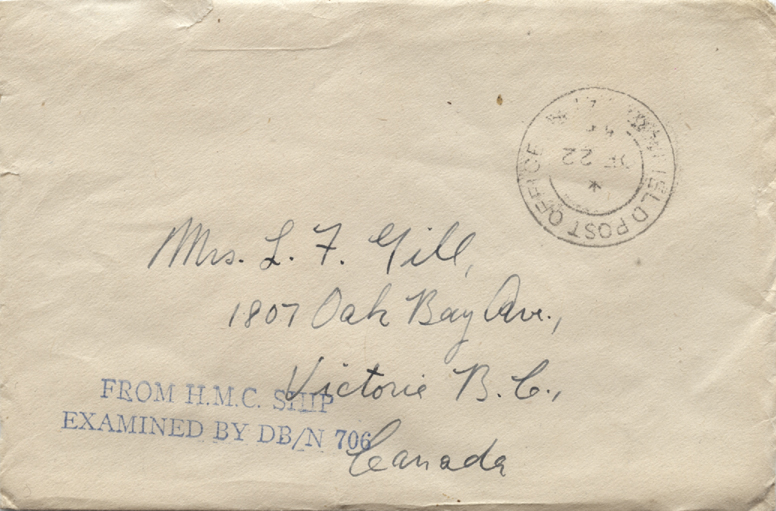 FIELD POST OFFICE
22
Mrs. L. F. Gill,
1807 Oak Bay Ave.,
Victoria B.C.,
Canada
FROM H.M.C. SHIP
EXAMINED BY DB/N 706